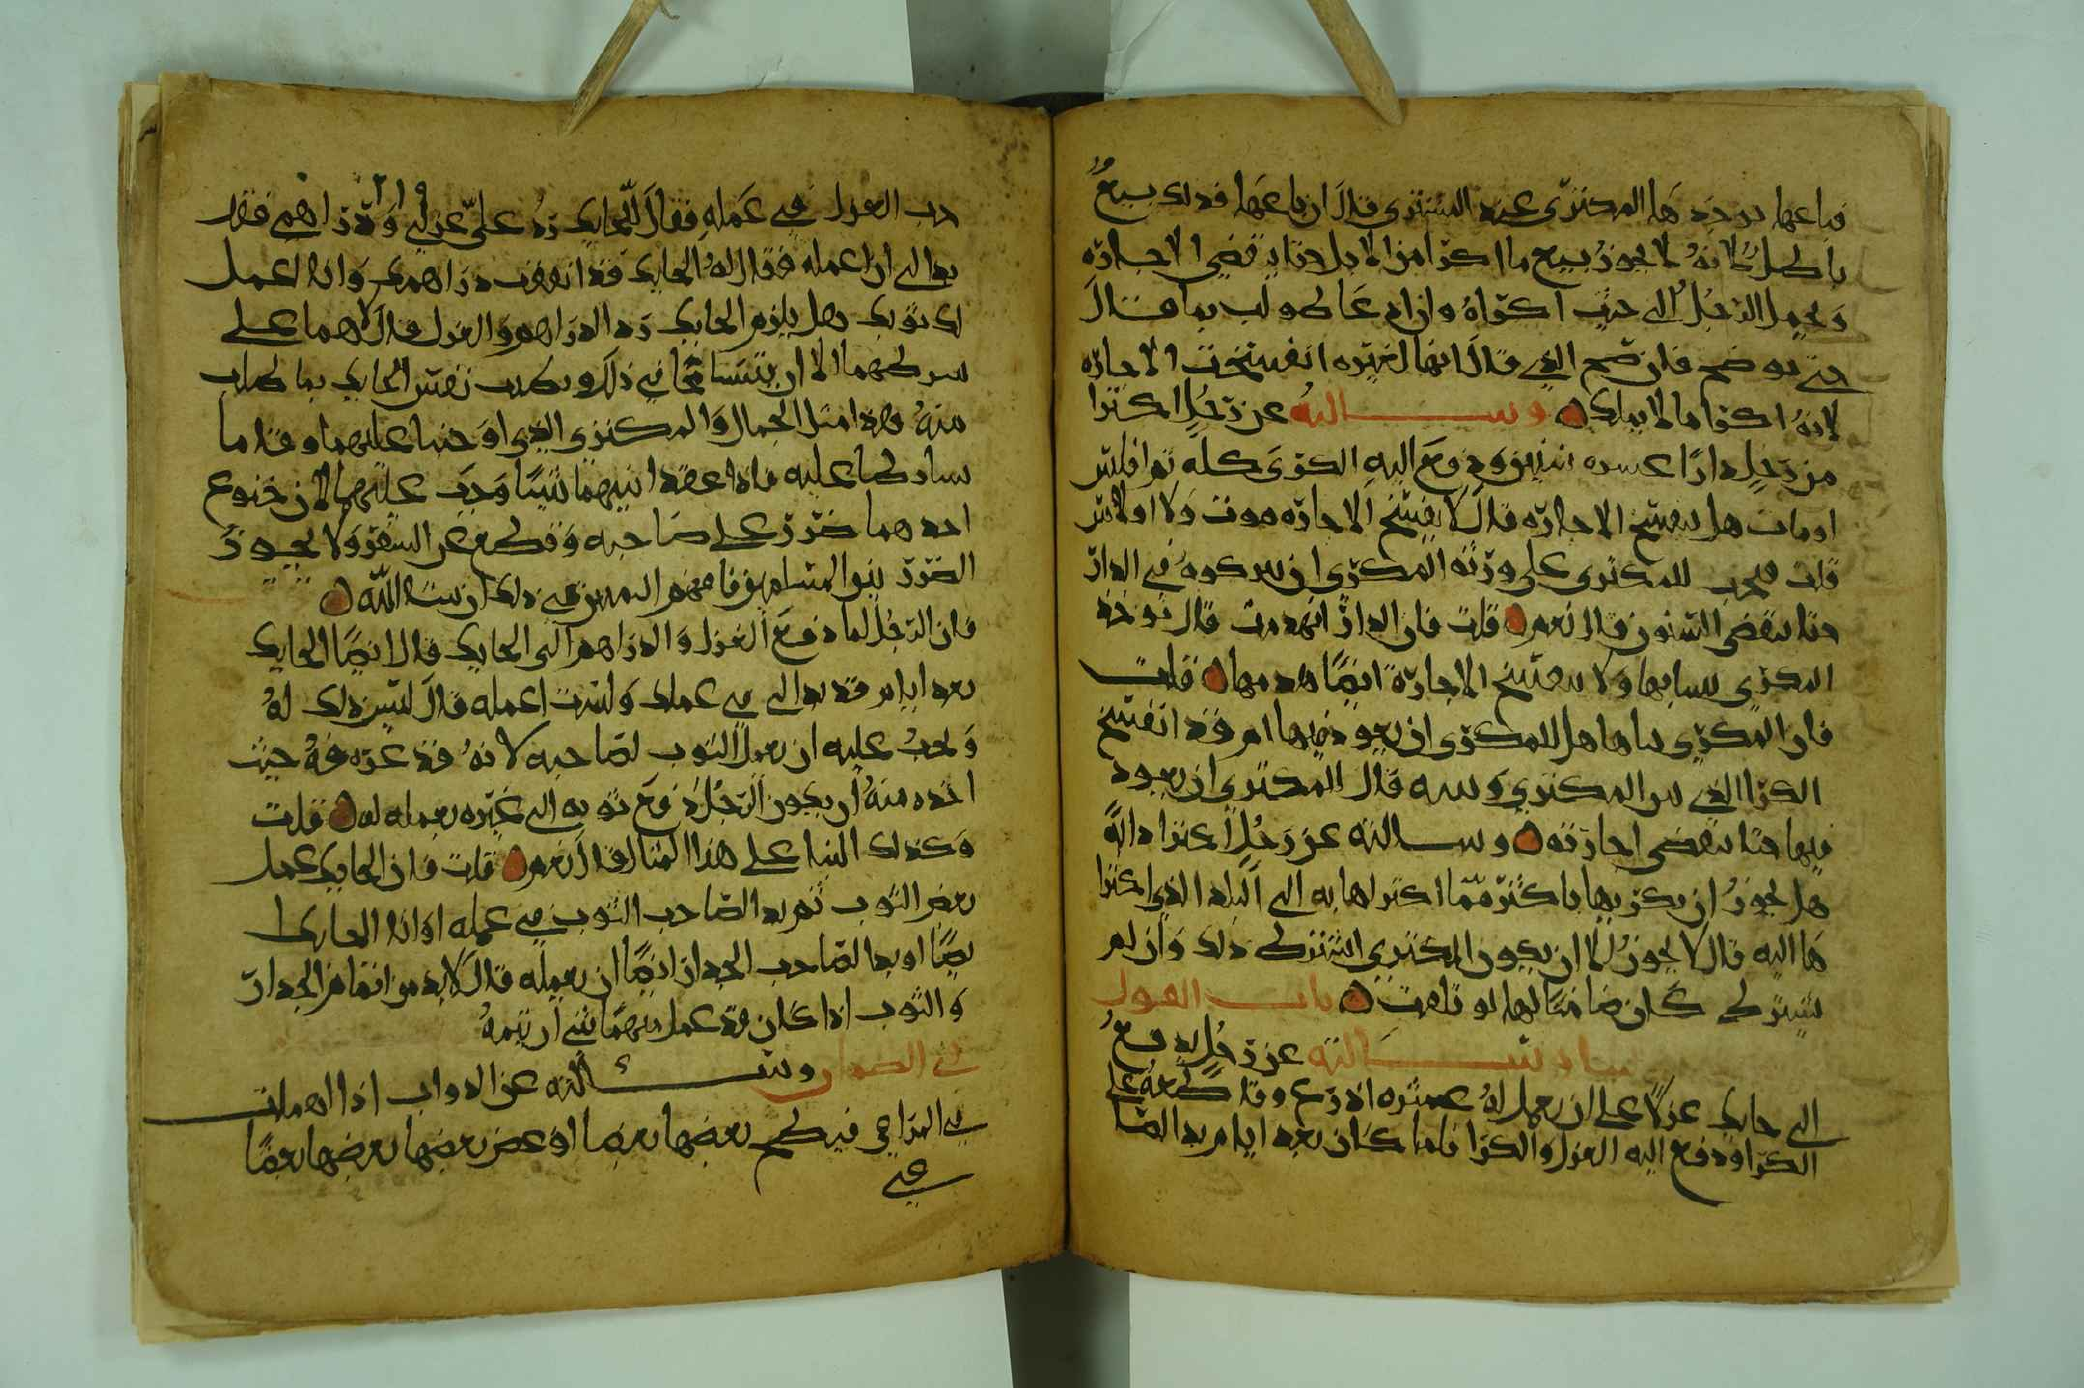 فباعها يوخذها المكتري عند المشتري قال ان باعها فذلك بيع
باطل لانه لا يجوز بيع ما اكترا من الابل حتا يقضي الاجاره
ويحمل الرجل الى حيث اكتراه وان ادعا لم يطالب بما قال
حتى يوضح فان صح الذي قال انها لغيره انفسخت الاجاره
لانه اكترا ما لا يملك وسالته عن رجل اكترا
من رجل دارا عشره سنين ودفع اليه الكرى كله ثم افلس
او مات هل تنفسخ الاجاره قال لا يفسخ الاجاره موت ولا افلاس
قلت فيجب للمكتري على ورثة المكري ان يتركوه في الدار
حتا تنقضي السنون قال نعم قلت فان الدار انهدمت قال يوخذ
المكري ببنائها ولا تنفسخ الاجارة ايضا بهدمها قلت
فان المكري بناها هل للمكتري ان يعود فيها ام قد انفسخ
الكرا الذي بين المكتري وبينه قال للمكتري ان يعود
فيها حتا تنقضي اجارته وسالته عن رجل اكترا دابة
هل يجوز ان يكريها باكثر مما اكتراها به الى البلد الذي اكترا
ها اليه قال لا يجوز الا ان يكون المكتري اشترط ذلك وان لم
يشترط كان ضامنا لها لو تلفت باب القول
وسالته عن رجل يدفع
الى حايك غزلا على ان يعمل له عشره اذرع وقاطعه على
الكرا ودفع اليه الغزل والكرا فلما كان بعد ايام بدا لصا
حب الغزل في عمله فقال للحايك رد علي غزلي ودراهمي فقد
بدا لي ان اعمله فقال له الحايك قد انفقت دراهمك وانا اعمل
لك ثوبك هل يلزم الحايك رد الدراهم والغزل قال لا هما على
شرطهما الا ان يتسامحا في ذلك وتطيب نفس الحايك بما طلب
منه وهذا مثل الجمال والمكتري الذي اوجبنا عليهما وفا ما
تشارطا عليه فاذا عقدا بينهما شيئا وجب عليهما لان رجوع
احدهما ضرر على صاحبه وقطع عن السفر ولا يجوز
الضرر بين المسلمين فافهم التمييز في ذلك ان شا الله
فان الرجل لما دفع الغزل والدراهم الى الحايك قال ايضا الحايك
بعد ايام قد بدا لي في عملك ولست اعمله قال ليس ذلك له
ويجب عليه ان يعمل الثوب لصاحبه لانه قد عرفه حيث
اخذه منه ان يكون الرجل دفع ثوبه الى غيره يعمله له قلت
وكذلك البنا على هذا المثال قال نعم قلت فان الحايك عمل
بعض الثوب ثم بدا لصاحب الثوب في عمله او انه الحايك ا
يضا او بدا لصاحب الجدار ايضا ان يعمله قال لا بد من اتمام الجدار
والثوب اذا كان قد عمل منهما شي ان يتمه
في الضمان وسالته عن الدواب اذا اهملت
في المراعي فينطح بعضها بعضا او عض بعضها بعضا
في